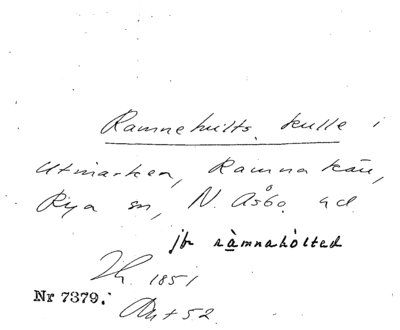 Ramnehults kulle i
Utmarken, Ramnakärr,
Rya sn, N. Åsbo hd
jfr ràmnahòlted
1851
Nr 7379.
52